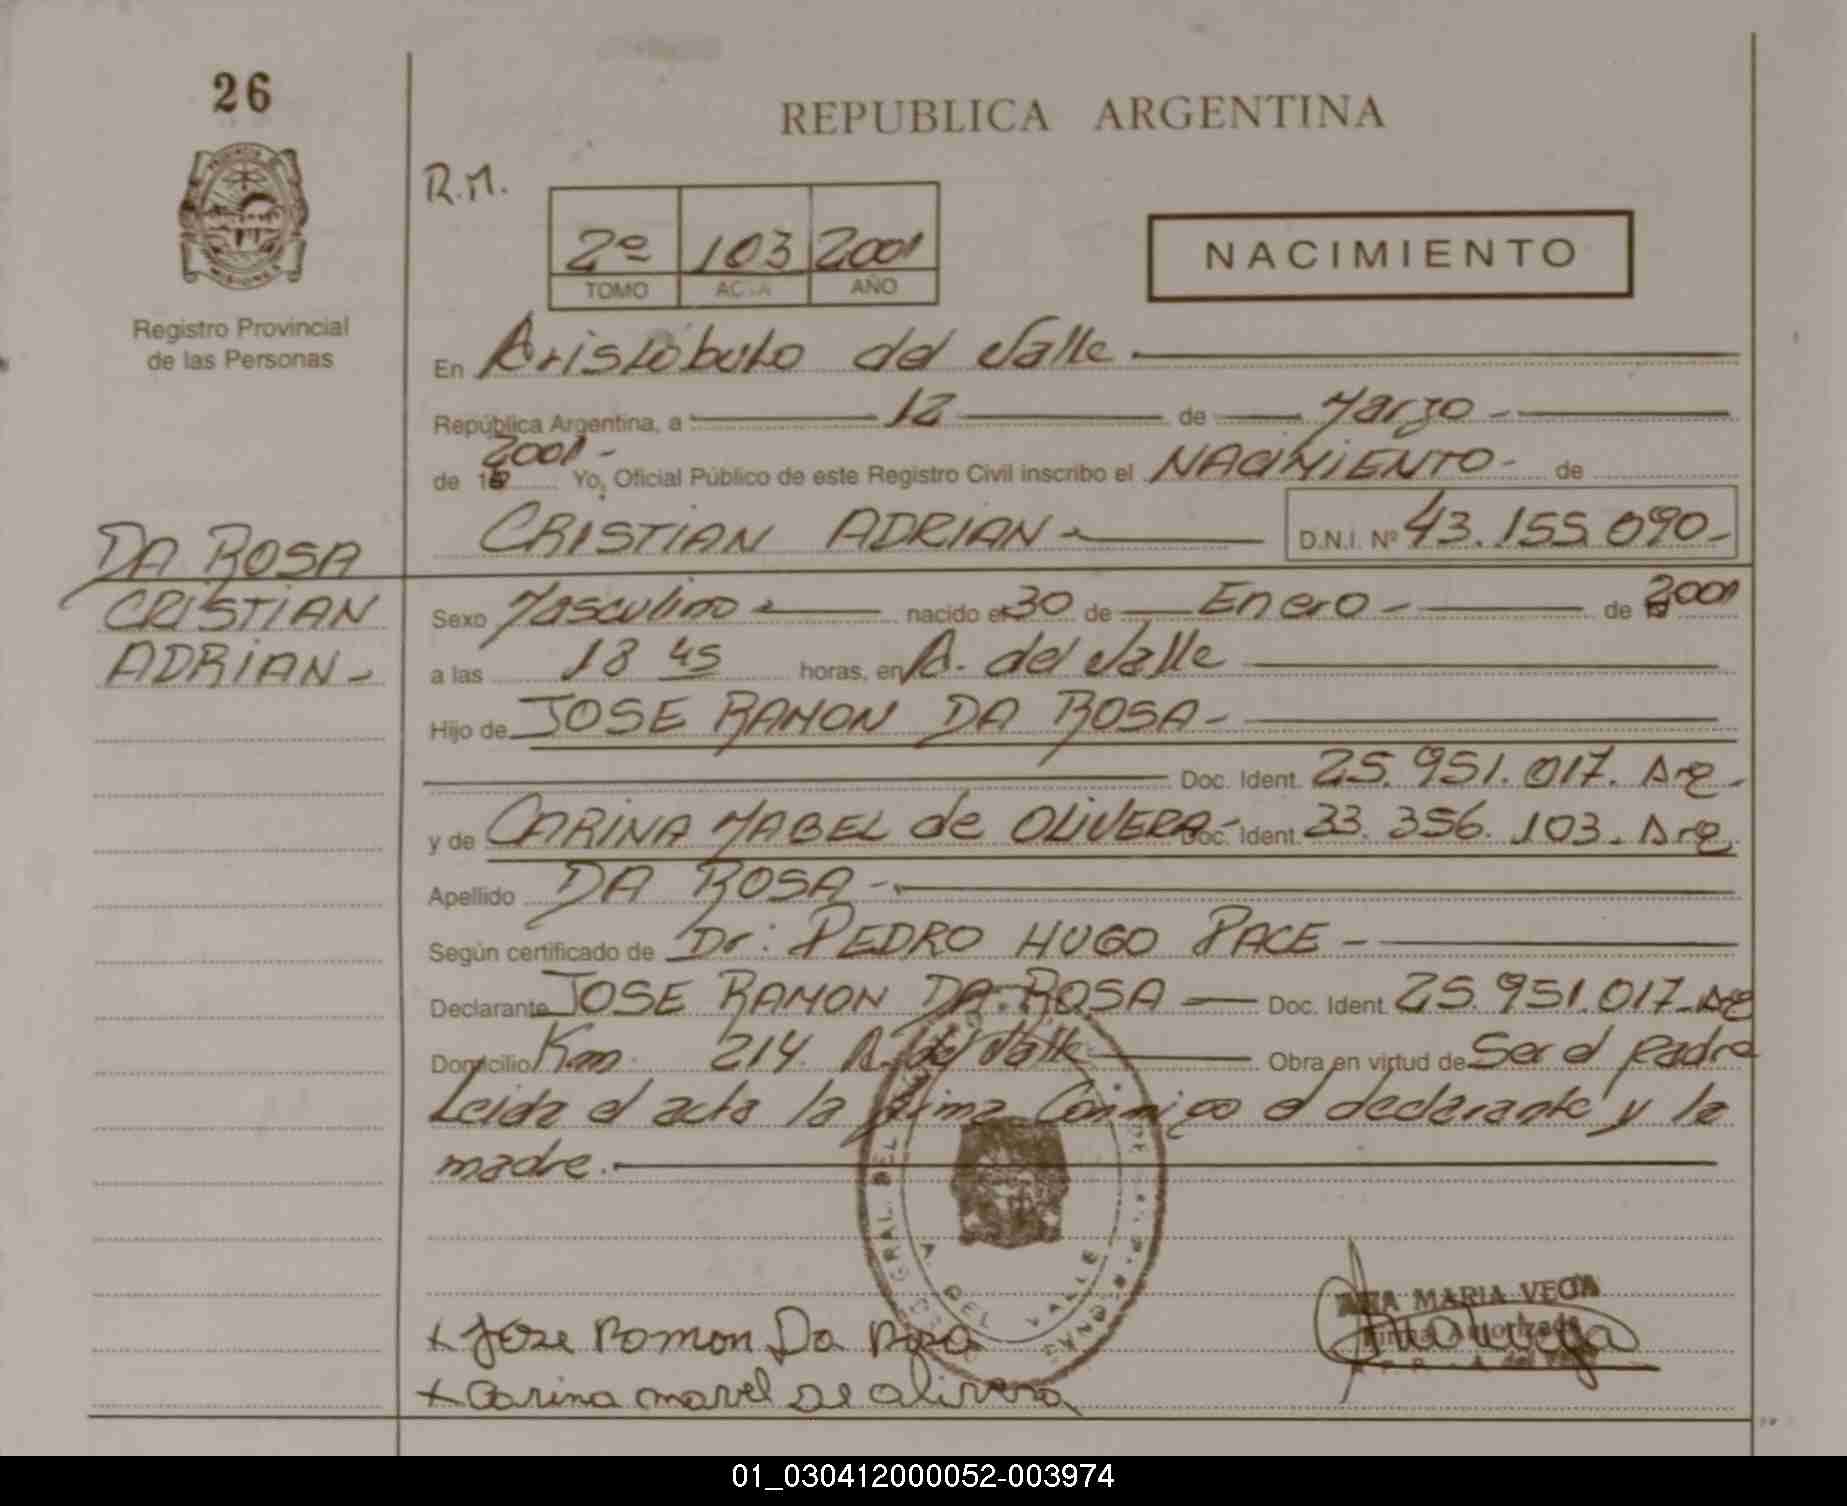 26
REPUBLICA ARGENTINA
PROVINCIA DE MISIONES
Registro Provincial
de las Personas
R.M.
2º 103 2001
TOMO ACTA AÑO
NACIMIENTO
En Aristobulo del Valle.
República Argentina, a 12 de Marzo -
de 19 2001 - Yo, Oficial Público de este Registro Civil inscribo el NACIMIENTO - de
CRISTIAN ADRIAN - D.N.I. Nº 43.155.090 -
DA ROSA
CRISTIAN
ADRIAN -
Sexo Masculino - nacido el 30 de Enero - de 2001
a las 18 45 horas, en A. del Valle
Hijo de JOSE RAMON DA ROSA -
Doc. Ident. 25.951.017. Arg -
y de CARINA MABEL de OLIVERA - Doc. Ident. 33.356.103. Arg
Apellido DA ROSA -
Según certificado de Dr: PEDRO HUGO PACE -
Declarante JOSE RAMON DA ROSA - Doc. Ident. 25.951.017 - Arg
Domicilio Km. 214. A. del Valle - Obra en virtud de Ser el padre
Leida el acta la firma Conmigo el declarante y la
madre.
GRAL. DEL
A. DEL VALLE
+ Jose Romon Da Rosa
+ Carina marel De olivera
ANA MARIA VEGA
Firma Autorizada
01_030412000052-003974